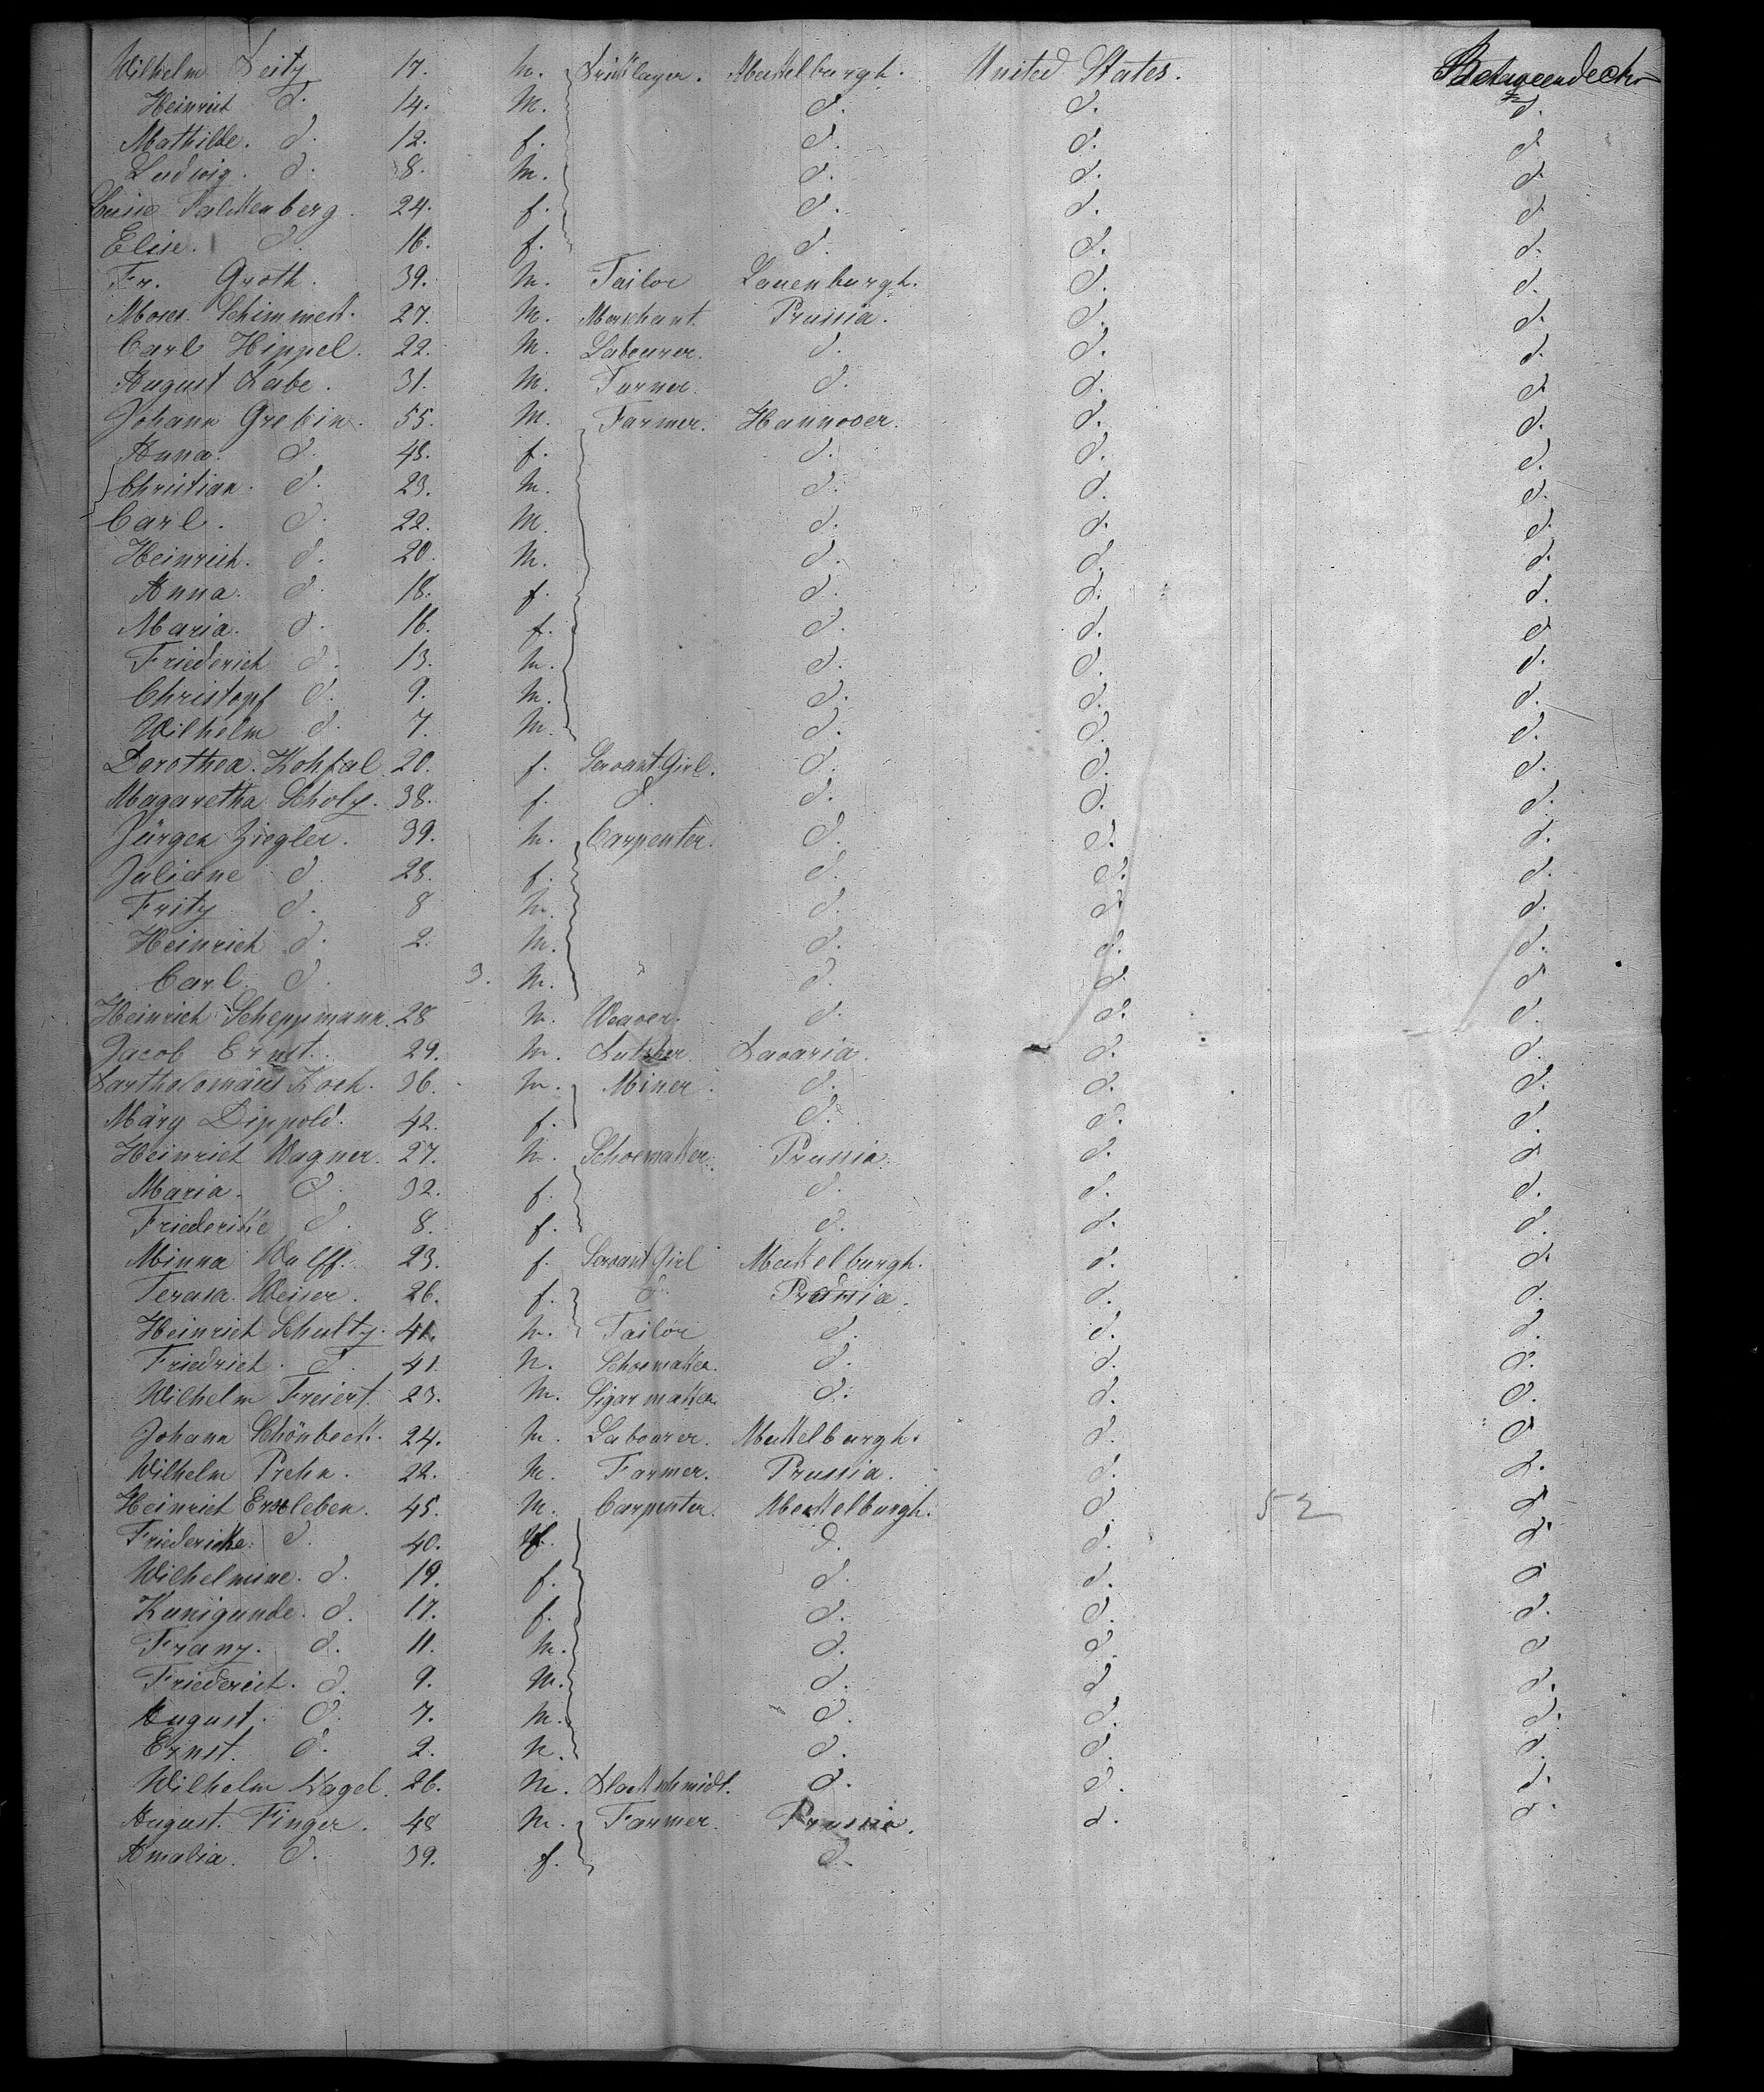 Wilhelm Seitz 17. m. Bricklayer. Mekkelburgh. United States. Betweendeck
Heinrich d. 14. m. d. d. d.
Mathilde. d. 12. f. d. d. d.
Ludwig. d. 8. m. d. d. d.
Luise Falkkenberg. 24. f. d. d. d.
Elise. d. 16. f. d. d. d.
Fr. Groth. 39. m. Tailor Lauenburgh. d. d.
Moses. 27. m. Merschant. Prussia. d. d.
Carl Hippel. 22. m. Labourer. d. d. d.
August Labe. 31. m. Turner. d. d. d.
Johann Grebin. 55. m. Farmer. Hannover. d. d.
Anna. d. 48. f. d. d. d.
Christian. d. 23. m. d. d. d.
Carl. d. 22. m. d. d. d.
Heinrich. d. 20. m. d. d. d.
Anna. d. 18. f. d. d. d.
Maria. d. 16. f. d. d. d.
Friederich d. 13. m. d. d. d.
Christopf d. 9. m. d. d. d.
Wilhelm d. 7. m. d. d. d.
Dorothea. Kohfal. 20. f. Servant Girl. d. d. d.
Magaretha Scholz. 38. f. d. d. d. d.
Jürgen Ziegler. 39. m. Carpenter. d. d. d.
Juliane d. 28. f. d. d. d.
Fritz d. 8 m. d. d. d.
Heinrich d. 2. m. d. d. d.
Carl. d. 3. m. d. d. d.
Heinrich Scheppmann. 28 m. Weaver. d. d. d.
Jacob Ernst. 29. m. Butsher Bavaria. d. d.
Bartholomäus Koch. 36. m. Miner. d. d. d.
Märg Dippold. 42. f. d. d. d.
Heinrich Wagner. 27. m. Schoemakker. Prussia. d. d.
Maria. d. 32. f. d. d. d.
Friederikke d. 8. f. d. d. d.
Minna Wulff. 23. f. Servant Girl Mekkelburgh. d. d.
Terasa. Weiser. 26. f. d. Prussia. d. d.
Heinrich Schultz. 41. m. Tailor d. d. d.
Friedrich. d. 41. m. Schoemakker. d. d. d.
Wilhelm Freiert. 23. m. Sigarmakker d. d. d.
Johann Schönbekk. 24. m. Labourer. Mekkelburgh. d. d.
Wilhelm Prehn. 22. m. Farmer. Prussia. d. d.
Heinrich Erxleben. 45. m. Carpenter. Mekkelburgh. d. 52 d.
Friederikke. d. 40. f. d. d. d.
Wilhelmine. d. 19. f. d. d. d.
Kunigunde. d. 17. f. d. d. d.
Franz. d. 11. m. d. d. d.
Friederich. d. 9. m. d. d. d.
August. d. 7. m. d. d. d.
Ernst. d. 2. m. d. d. d.
Wilhelm Nagel. 26. m. Blakkschmidt. d. d. d.
August. Finger. 48 m. Farmer. Prussia. d. d.
Amalia. d. 39. f. d.